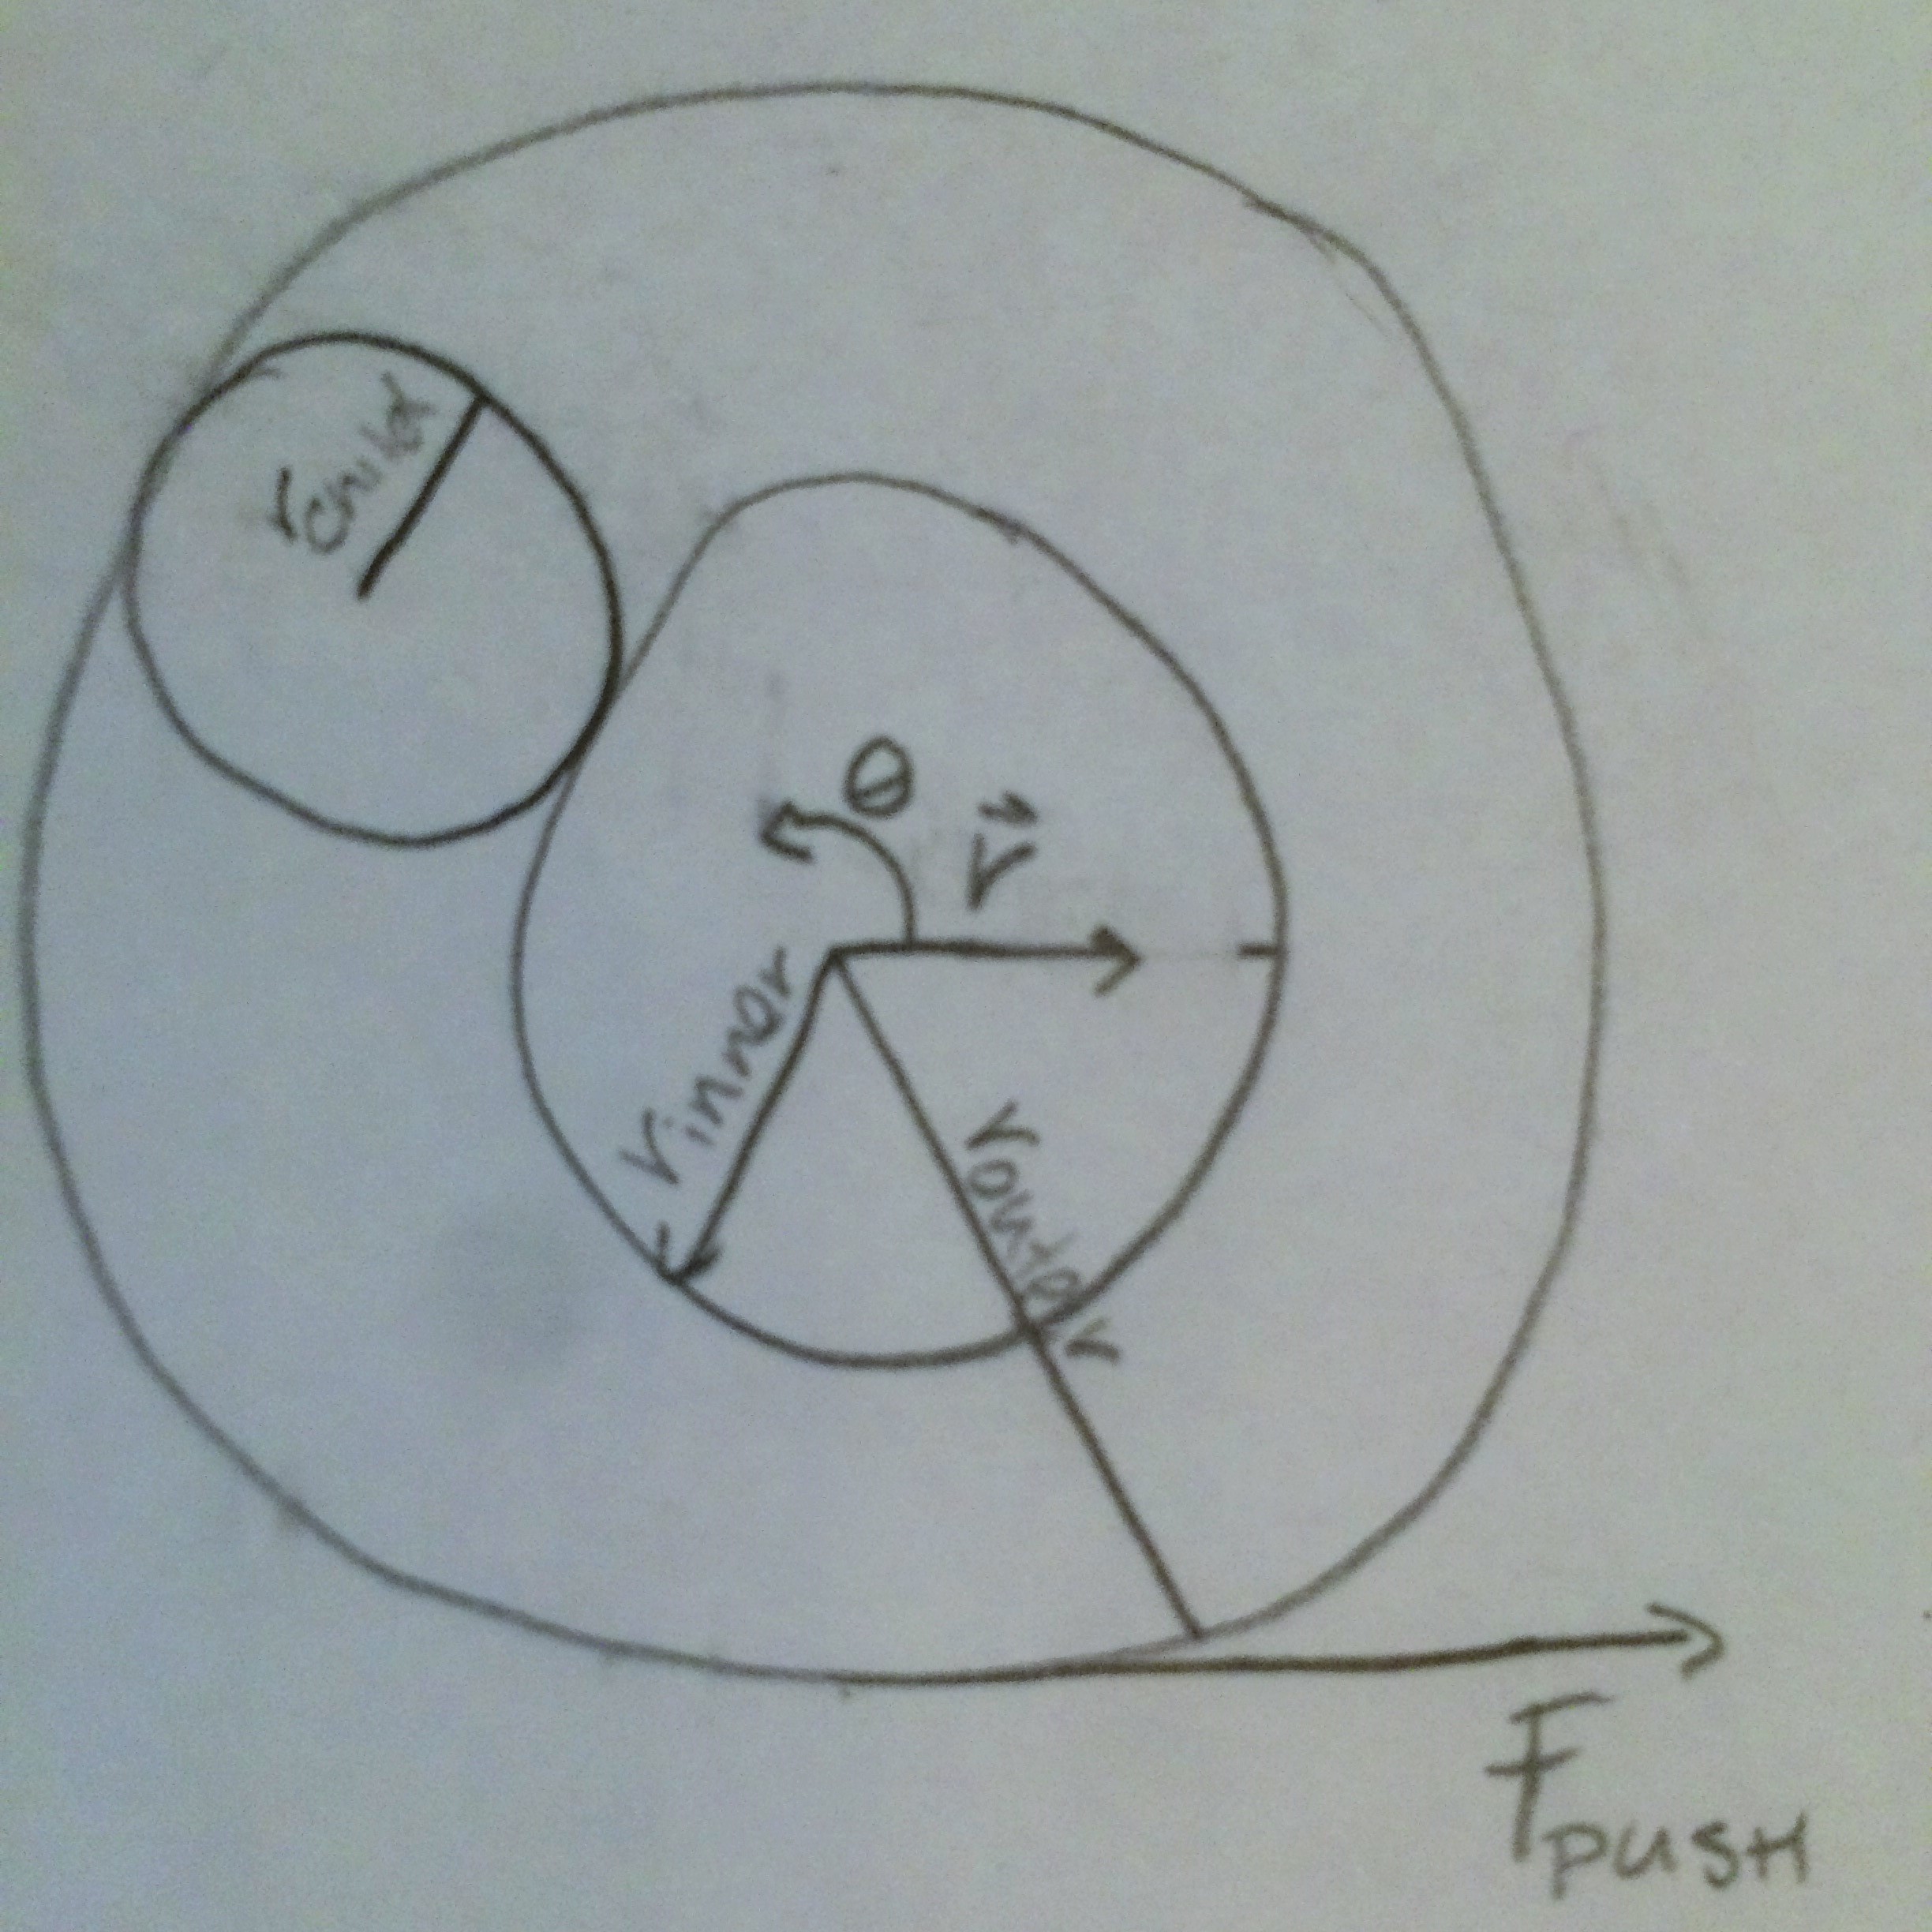 r child
θ
r̂
r inner
r outer
F PUSH